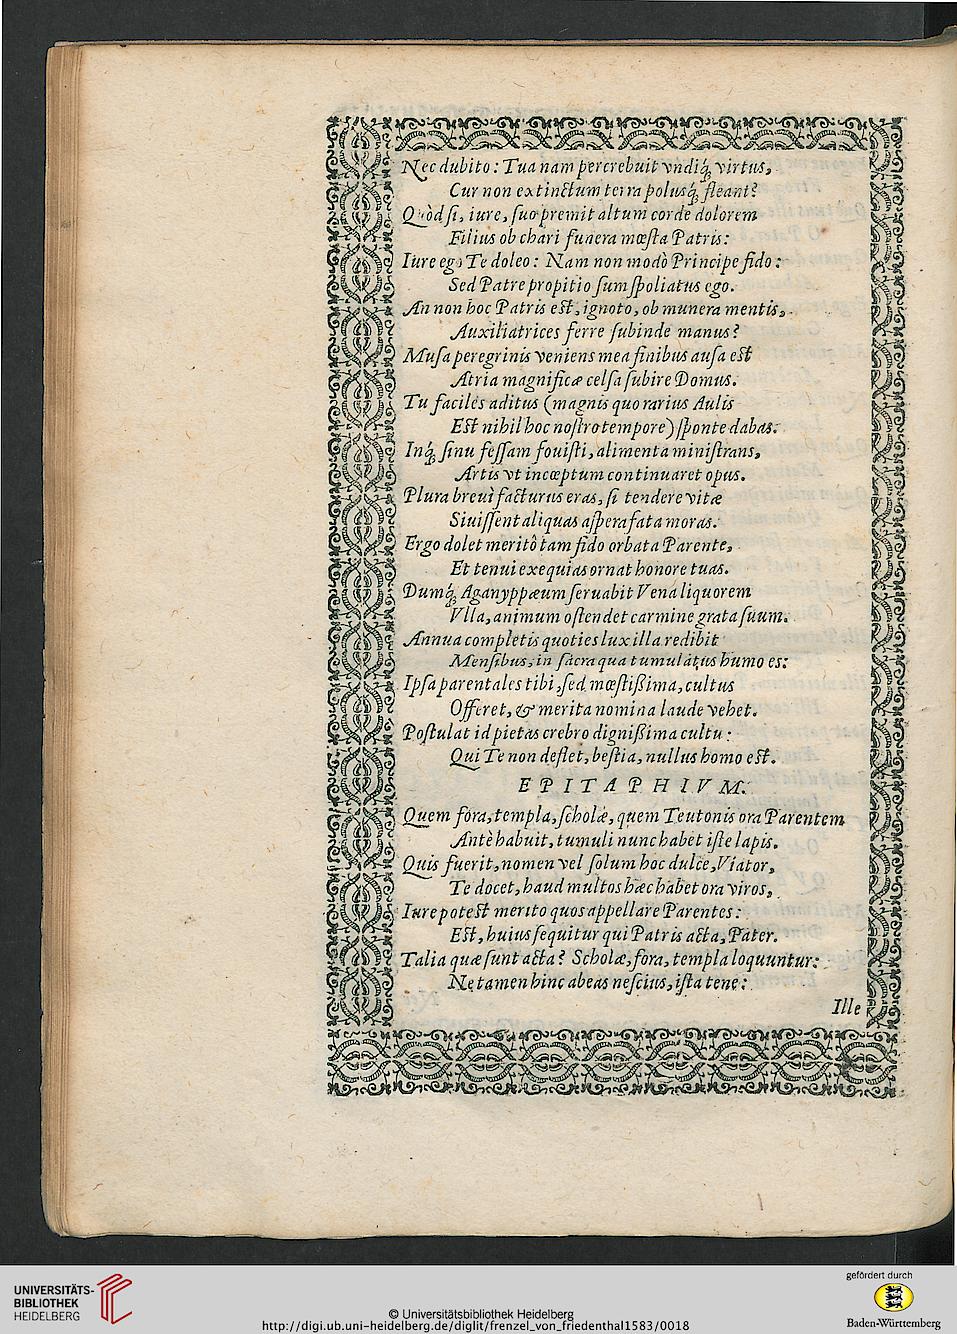 Nec dubito: Tua nam percrebuit vndiq́; virtus,
Cur non extinctum terra polusq́; fleant?
Quòd si, iure, suo premit altum corde dolorem
Filius ob chari funera mœsta Patris:
Iure ego Te doleo: Nam non modò Principe fido:
Sed Patre propitio sum spoliatus ego.
An non hoc Patris est, ignoto, ob munera mentis,
Auxiliatrices ferre subinde manus?
Musa peregrinis veniens mea finibus ausa est
Atria magnificæ celsa subire Domus.
Tu faciles aditus (magnis quo rarius Aulis
Est nihil hoc nostro tempore) sponte dabas:
Inq́; sinu fessam fouisti, alimenta ministrans,
Artis vt inceptum continuaret opus.
Plura breui facturus eras, si tendere vitæ
Siuissent aliquas aspera fata moras.
Ergo dolet meritò tam fido orbata Parente,
Et tenui exequias ornat honore tuas.
Dumq́; Aganyppæum seruabit Vena liquorem
Vlla, animum ostendet carmine grata suum.
Annua completis quoties lux illa redibit
Mensibus, in sacra qua tumulatus humo es:
Ipsa parentales tibi, sed mœstißima, cultus
Offeret, & merita nomina laude vehet.
Postulat id pietas crebro dignißima cultu:
Qui Te non deflet, bestia, nullus homo est.
EPITAPHIVM.
Quem fora, templa, scholæ, quem Teutonis ora Parentem
Antè habuit, tumuli nunc habet iste lapis.
Quis fuerit, nomen vel solum hoc dulce, Viator,
Te docet, haud multos hæc habet ora viros,
Iure potest merito quos appellare Parentes:
Est, huius sequitur qui Patris acta, Pater.
Talia quæ sunt acta? Scholæ, fora, templa loquuntur:
Ne tamen hinc abeas nescius, ista tene:
Ille
UNIVERSITÄTS-
BIBLIOTHEK
HEIDELBERG
© Universitätsbibliothek Heidelberg
http://digi.ub.uni-heidelberg.de/diglit/frenzel_von_friedenthal1583/0018
gefördert durch
Baden-Württemberg